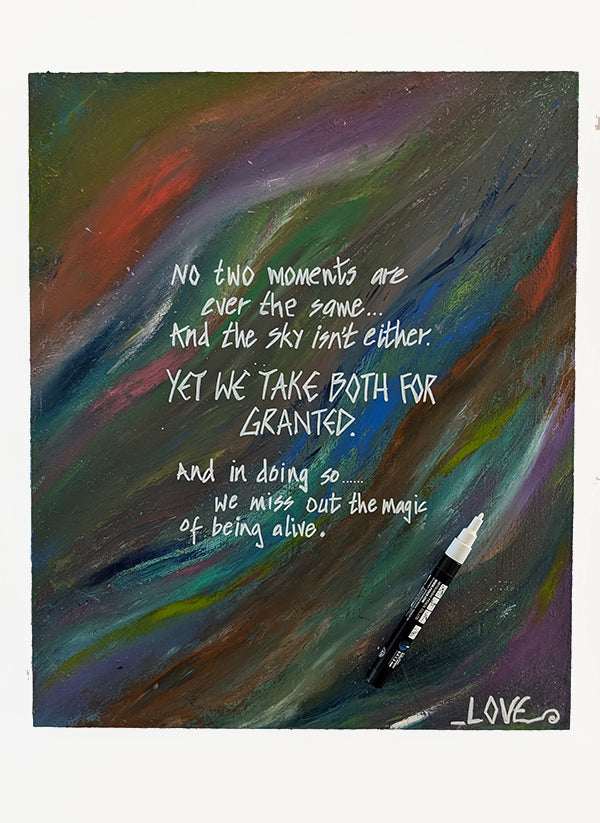 No two moments are
ever the same...
And the sky isn't either.
YET WE TAKE BOTH FOR
GRANTED.
And in doing so......
we miss out the magic
of being alive.
_LOVE